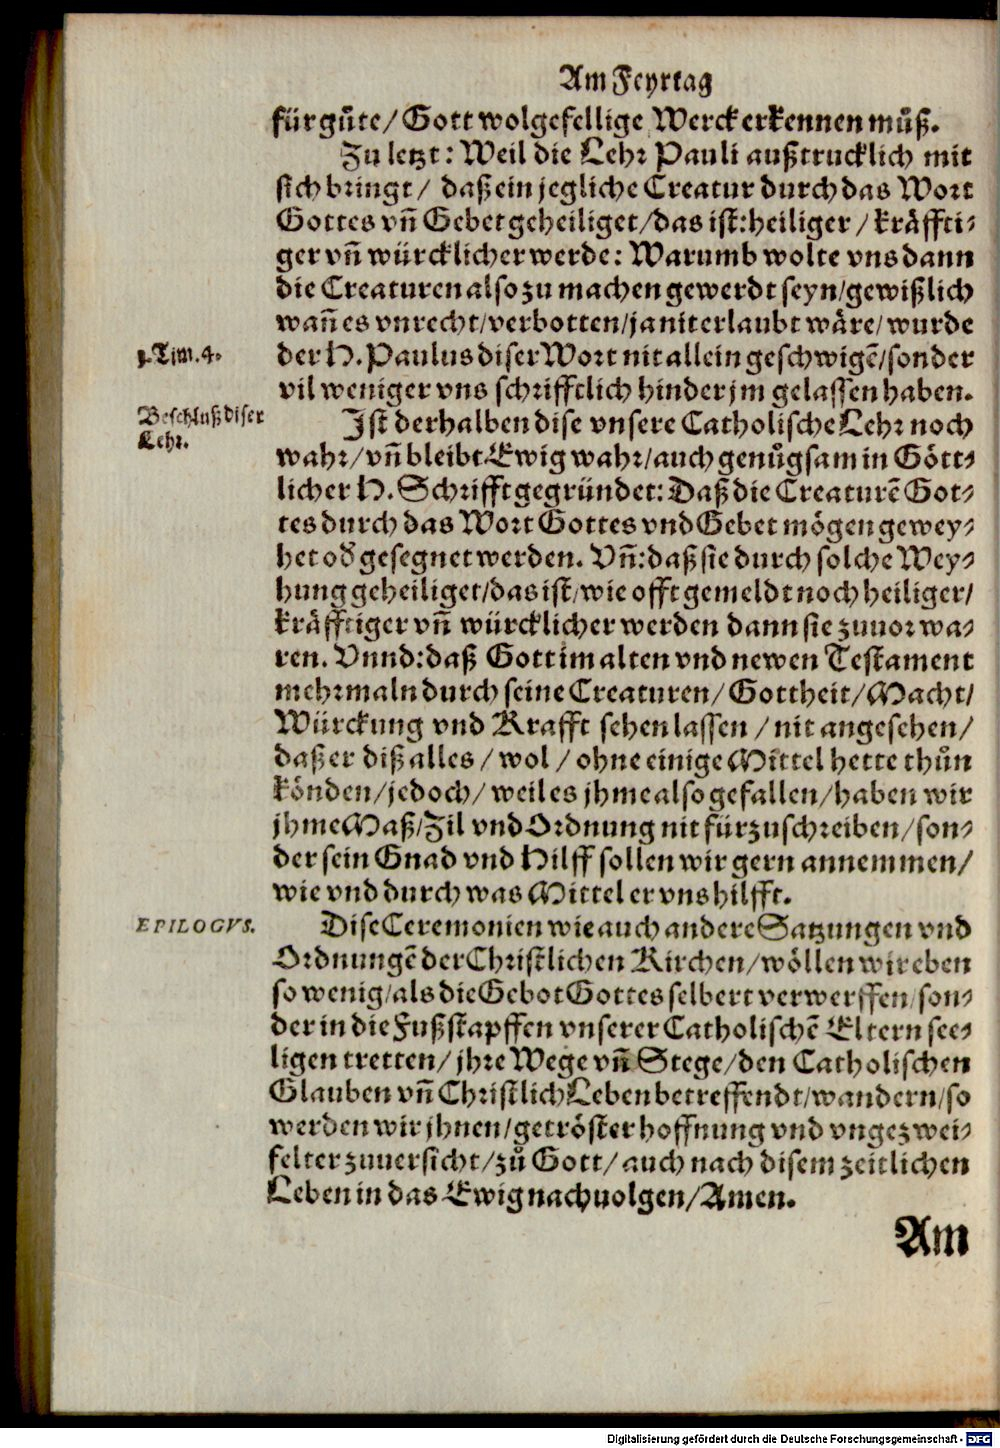 Am Feyrtag
für gůte/ Gott wolgefellige Werck erkennen můß.
Zu letzt: Weil die Lehr Pauli außtrucklich mit
sich bringt/ daß ein jegliche Creatur durch das Wort
Gottes vñ Gebet geheiliget/das ist:heiliger/ kräffti-
ger vñ würcklicher werde: Warumb wolte vns dann
die Creaturen also zu machen gewerdt seyn/gewißlich
wañ es vnrecht/verbotten/ja nit erlaubt wäre/wurde
1. Tim. 4.
der H. Paulus diser Wort nit allein geschwigẽ/sonder
vil weniger vns schrifftlich hinder jm gelassen haben.
Beschluß diser
Lehr.
Ist derhalben dise vnsere Catholische Lehr noch
wahr/vñ bleibt Ewig wahr/auch genůgsam in Gött-
licher H. Schrifft gegründet: Daß die Creaturẽ Got-
tes durch das Wort Gottes vnd Gebet mögen gewey-
het oď gesegnet werden. Vñ:daß sie durch solche Wey-
hung geheiliget/das ist/wie offt gemeldt noch heiliger/
kräfftiger vñ würcklicher werden dann sie zuuor wa-
ren. Vnnd:daß Gott im alten vnd newen Testament
mehrmaln durch seine Creaturen/ Gottheit/Macht/
Würckung vnd Krafft sehen lassen/ nit angesehen/
daß er diß alles/ wol/ ohne einige Mittel hette thůn
könden/jedoch/ weil es jhme also gefallen/haben wir
jhme Maß/Zil vnd Ordnung nit fürzuschreiben/son-
der sein Gnad vnd Hilff sollen wir gern annemmen/
wie vnd durch was Mittel er vns hilfft.
EPILOGVS.
Dise Ceremonien wie auch andere Satzungen vnd
Ordnungẽ der Christlichen Kirchen/wöllen wir eben
so wenig/als die Gebot Gottes selbert verwerffen/son-
der in die Fußstapffen vnserer Catholischẽ Eltern see-
ligen tretten/ jhre Wege vñ Stege/den Catholischen
Glauben vñ Christlich Leben betreffendt/wandern/so
werden wir jhnen/getröster hoffnung vnd vngezwei-
felter zuuersicht/zů Gott/ auch nach disem zeitlichen
Leben in das Ewig nachuolgen/Amen.
Am
Digitalisierung gefördert durch die Deutsche Forschungsgemeinschaft - DFG